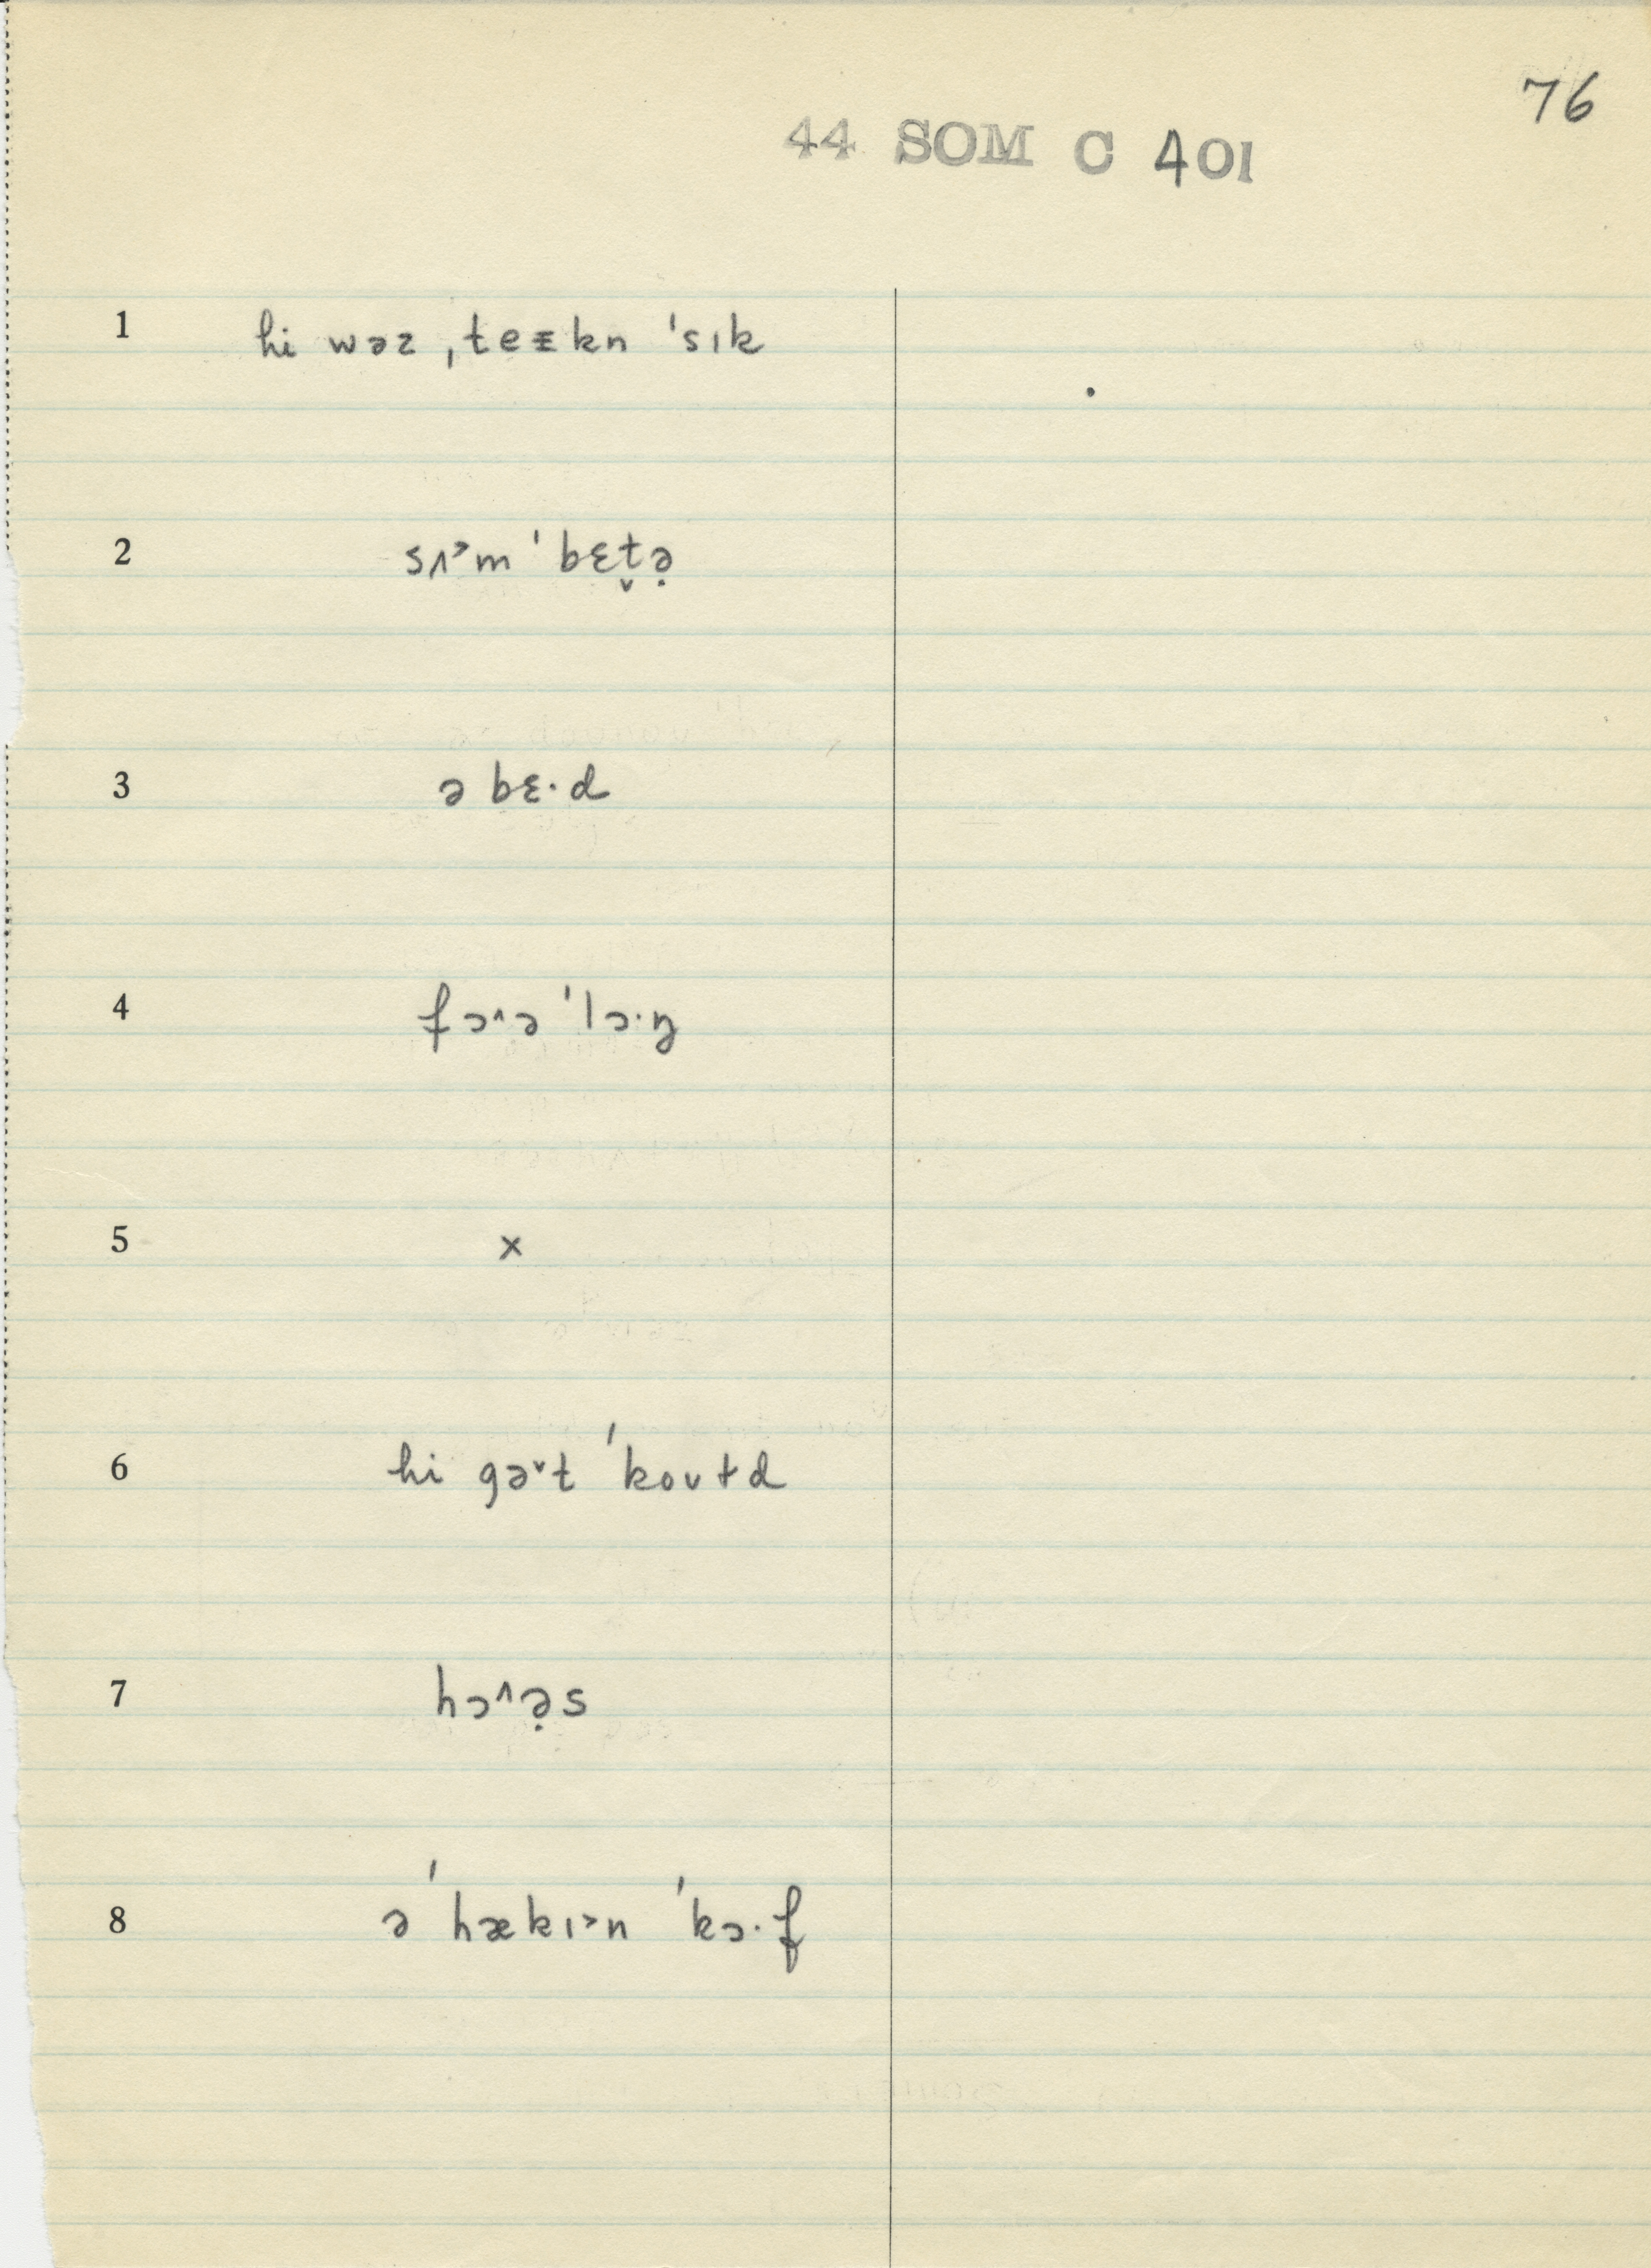 76
44 SOM C 401
1 hi wəz ˌteɪkn ˈsɪk
2 sʌ˃m ˈbɛt̬ə̣
3 ə bɛ·d
4 fɔ˄ə ˈlɔ·ŋ
5 x
6 hi gə˅t ˈkoʊɫd
7 hɔ˄ə̣s
8 ə ˈhækɪ˃n ˈkɔ·f